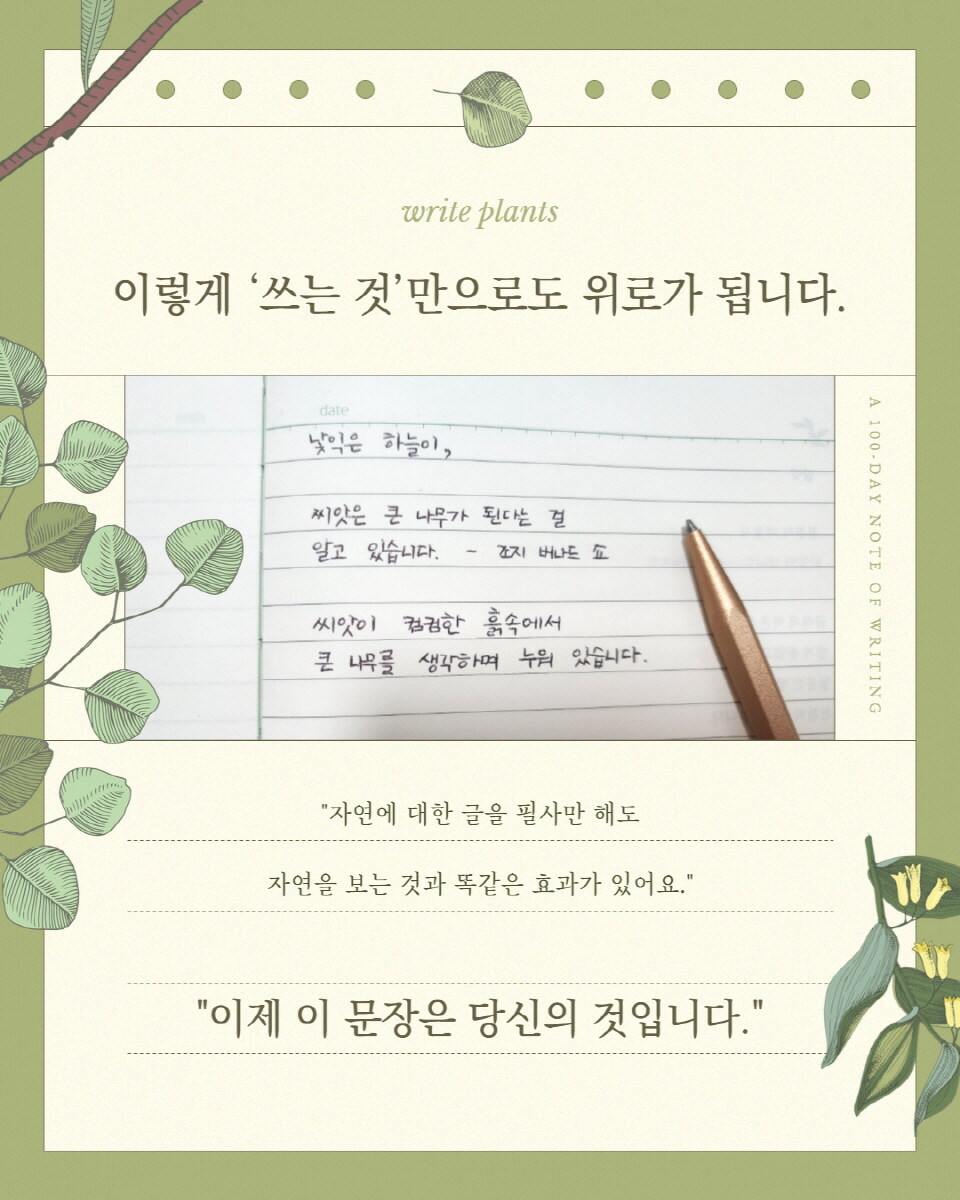 write plants
이렇게 ‘쓰는 것’만으로도 위로가 됩니다.
date
낯익은 하늘이,
씨앗은 큰 나무가 된다는 걸
알고 있습니다. - 조지 버나드 쇼
씨앗이 컴컴한 흙속에서
큰 나무를 생각하며 누워 있습니다.
A 100-DAY NOTE OF WRITING
"자연에 대한 글을 필사만 해도
자연을 보는 것과 똑같은 효과가 있어요."
"이제 이 문장은 당신의 것입니다."